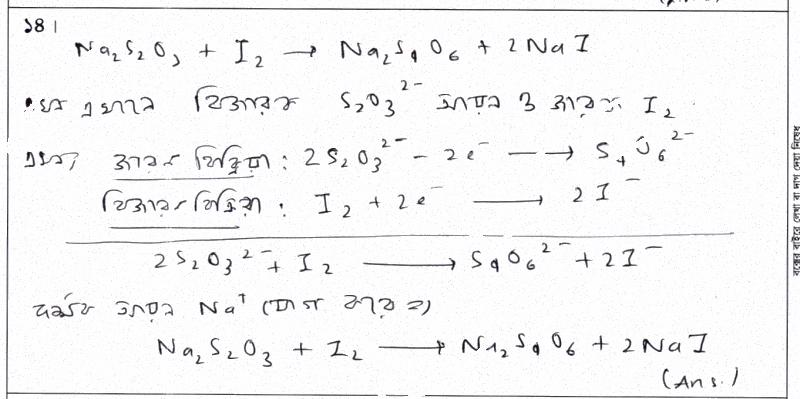 ১৪।
Na₂S₂O₃ + I₂ → Na₂S₄O₆ + 2NaI
এখানে বিজারক S₂O₃²⁻ আয়ন ও জারক I₂
এখন, জারন বিক্রিয়া : 2S₂O₃²⁻ − 2e⁻ → S₄O₆²⁻
বিজারন বিক্রিয়া : I₂ + 2e⁻ → 2I⁻
2S₂O₃²⁻ + I₂ → S₄O₆²⁻ + 2I⁻
দর্শক আয়ন Na⁺ যোগ করে
Na₂S₂O₃ + I₂ → Na₂S₄O₆ + 2NaI
(Ans.)
বক্সের বাইরে লেখা বা দাগ দেয়া নিষেধ